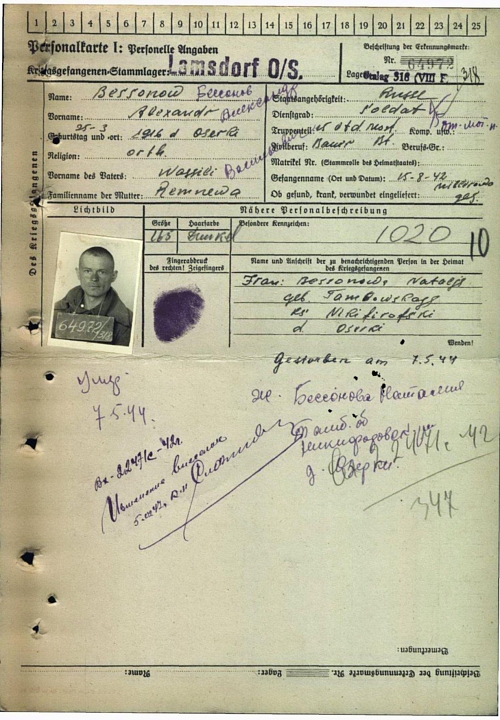 1 2 3 4 5 6 7 8 9 10 11 12 13 14 15 16 17 18 19 20 21 22 23 24 25
Personalkarte I: Personelle Angaben
Beschriftung der Erkennungsmarke:
Kriegsgefangenen-Stammlager: Lamsdorf O/S.
Nr. 64972
Lager: Stalag 318 (VIII F) 318
Des Kriegsgefangenen
Name: Bessonow Бессонов
Staatsangehörigkeit: Russe
Vorname: Alexandr
Dienstgrad: Soldat
Geburtstag und -ort: 25-3 1916 d Oserki
Truppenteil: Komp. usw.:
Religion: orth.
Zivilberuf: Bauer Berufs-Gr.:
Matrikel Nr. (Stammrolle des Heimatstaates):
Vorname des Vaters: Wassili
Gefangennahme (Ort und Datum): 15-8-42
Familienname der Mutter: Remnewa
Ob gesund, krank, verwundet eingeliefert: ges.
Lichtbild
Nähere Personalbeschreibung
Größe Haarfarbe Besondere Kennzeichen:
165 dunkel 1020 10
Fingerabdruck
des rechten! Zeigefingers
Name und Anschrift der zu benachrichtigenden Person in der Heimat
des Kriegsgefangenen
Frau: Bessonowa Natalja
geb. Tambowskaja
d Oserki
64972
Wenden!
Gestorben am 7.5.44
7.5.44.
ж. Бессонова Наталия
Вх-2247/с-42г.
347
Bemerkungen:
Beschriftung der Erkennungsmarke Nr. Lager: Name: